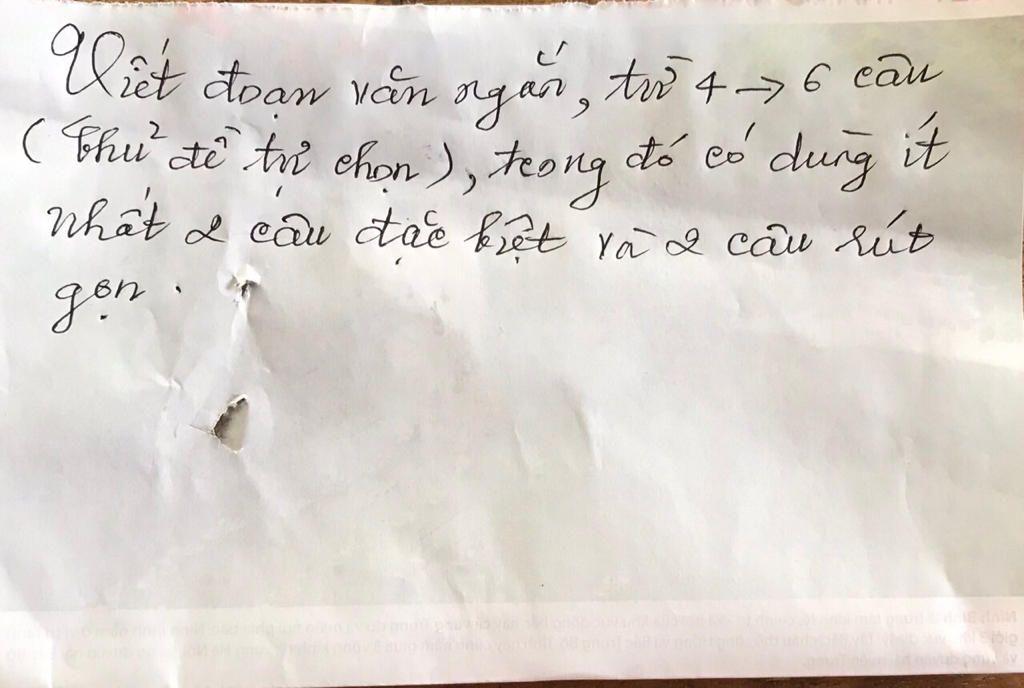 Viết đoạn văn ngắn, từ 4 → 6 câu
(Chủ đề tự chọn), trong đó có dùng ít
nhất 2 câu đặc biệt và 2 câu rút
gọn.